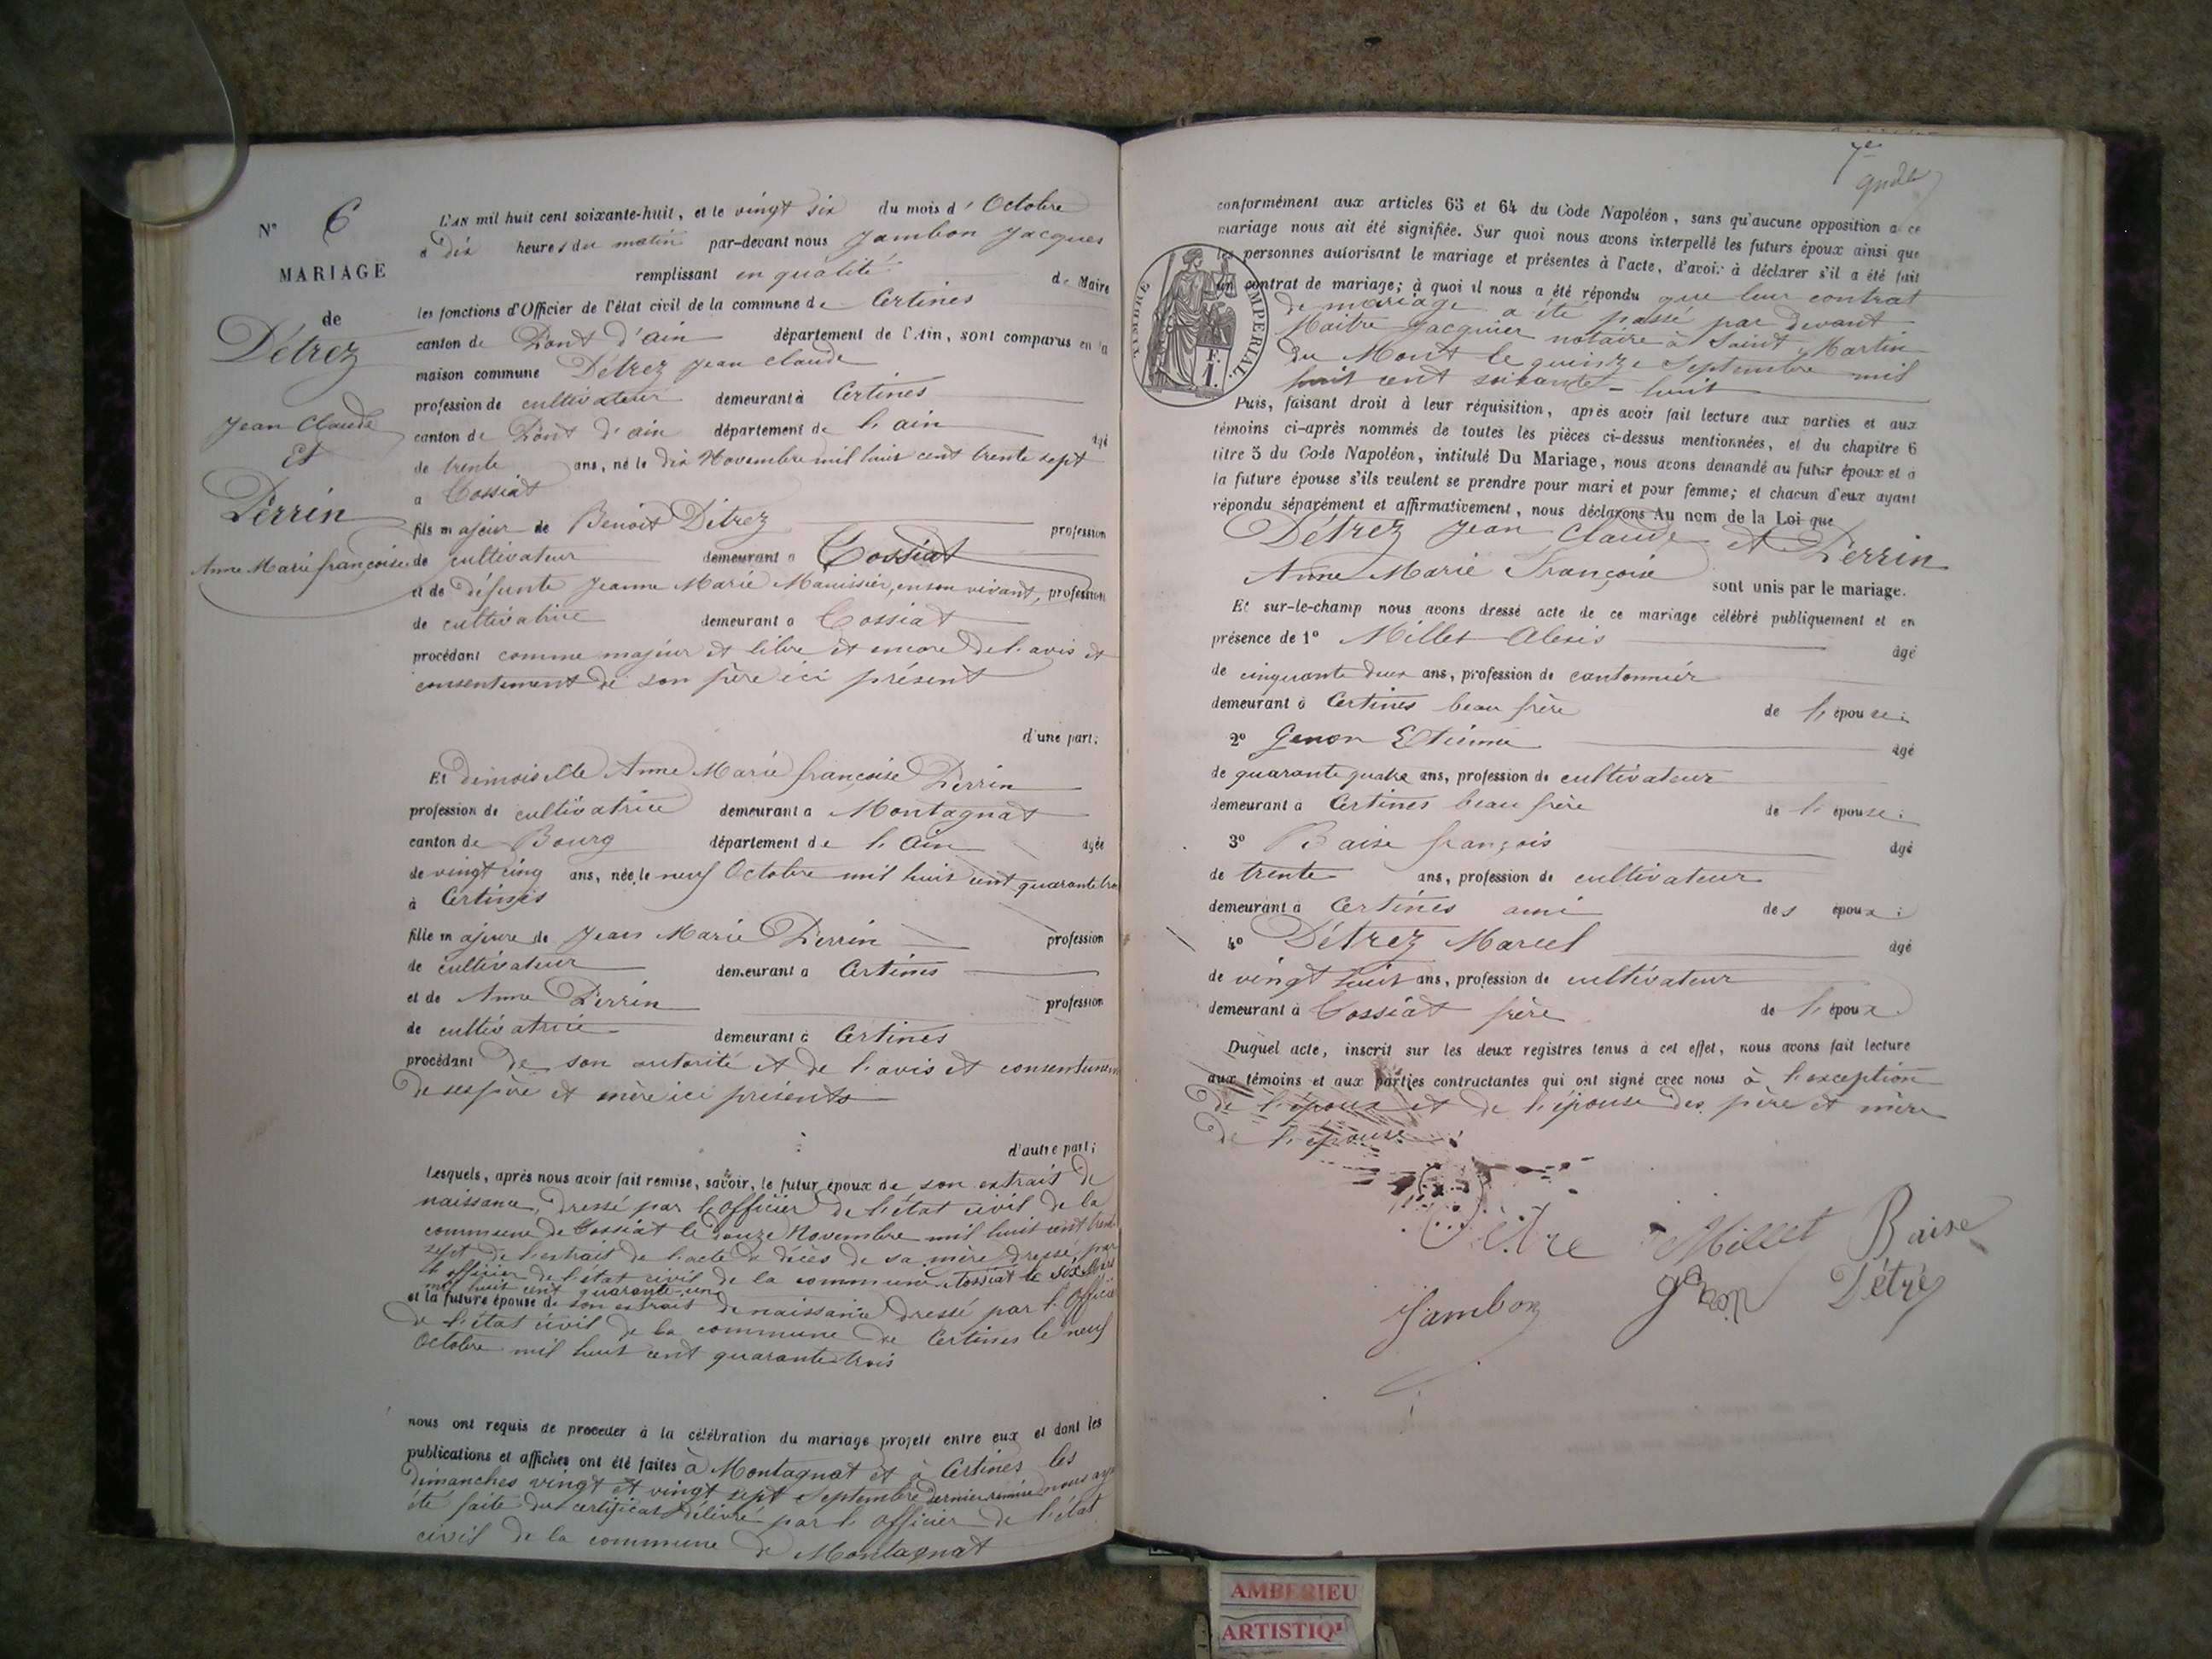 N° 6
MARIAGE
de
Détrez
Jean Claude
Et
Perrin
Anne Marie françoise
L'AN mil huit cent soixante-huit, et le vingt six du mois d'Octobre
à dix heures du matin par-devant nous Jambon Jacques
remplissant en qualité de Maire
les fonctions d'Officier de l'état civil de la commune de Certines
canton de Pont d'ain département de l'Ain, sont comparus en la
maison commune Détrez Jean Claude
profession de cultivateur demeurant à Certines
canton de Pont d'ain département de l'ain âgé
de trente ans, né le dix Novembre mil huit cent trente sept
à Tossiat
fils majeur de Benoit Détrez profession
de cultivateur demeurant à Tossiat
et de défunte Jeanne Marie Manissier, en son vivant, profession
de cultivatrice demeurant à Tossiat
procédant comme majeur et libre et encore de l'avis et
consentement de son père ici présent
d'une part;
Et demoiselle Anne Marie françoise Perrin
profession de cultivatrice demeurant à Montagnat
canton de Bourg département de l'Ain âgée
de vingt cinq ans, née le neuf Octobre mil huit cent quarante trois
à Certines
fille majeure de Jean Marie Perrin profession
de cultivateur demeurant à Certines
et de Anne Perrin profession
de cultivatrice demeurant à Certines
procédant de son autorité et de l'avis et consentement
de ses père et mère ici présents
d'autre part;
Lesquels, après nous avoir fait remise, savoir, le futur époux de son extrait de
naissance, dressé par l'Officier de l'état civil de la
commune de Tossiat le douze Novembre mil huit cent trente
sept de l'extrait de l'acte de décès de sa mère dressé par
l'officier de l'état civil de la commune Tossiat le six
mil huit cent quarante un
et la future épouse de son extrait de naissance dressé par l'Officier
de l'état civil de la commune de Certines le neuf
Octobre mil huit cent quarante trois
nous ont requis de procéder à la célébration du mariage projeté entre eux et dont les
publications et affiches ont été faites à Montagnat et à Certines les
dimanches vingt et vingt sept Septembre dernier remise nous ayant
été faite du certificat délivré par l'officier de l'état
civil de la commune de Montagnat
7e
conformément aux articles 63 et 64 du Code Napoléon, sans qu'aucune opposition à ce
mariage nous ait été signifiée. Sur quoi nous avons interpellé les futurs époux ainsi que
les personnes autorisant le mariage et présentes à l'acte, d'avoir à déclarer s'il a été fait
un contrat de mariage; à quoi il nous a été répondu que leur contrat
de mariage a été passé par devant
Maitre Jacquier notaire à Saint Martin
du Mont le quinze Septembre mil
huit cent soixante-huit
TIMBRE IMPERIAL
Puis, faisant droit à leur réquisition, après avoir fait lecture aux parties et aux
témoins ci-après nommés de toutes les pièces ci-dessus mentionnées, et du chapitre 6
titre 5 du Code Napoléon, intitulé Du Mariage, nous avons demandé au futur époux et à
la future épouse s'ils veulent se prendre pour mari et pour femme; et chacun d'eux ayant
répondu séparément et affirmativement, nous déclarons Au nom de la Loi que
Détrez Jean Claude et Perrin
Anne Marie Françoise sont unis par le mariage.
Et sur-le-champ nous avons dressé acte de ce mariage célébré publiquement et en
présence de 1° Millet Alexis âgé
de cinquante deux ans, profession de cantonnier
demeurant à Certines beau frère de l'épouse;
2° Genon Etienne âgé
de quarante quatre ans, profession de cultivateur
demeurant à Certines beau frère de l'épouse;
3° Baise françois âgé
de trente ans, profession de cultivateur
demeurant à Certines ami des époux;
4° Détrez Marcel âgé
de vingt huit ans, profession de cultivateur
demeurant à Tossiat frère de l'époux
Duquel acte, inscrit sur les deux registres tenus à cet effet, nous avons fait lecture
aux témoins et aux parties contractantes qui ont signé avec nous à l'exception
de l'époux et de l'épouse des père et mère
de l'épouse
Détre Millet Baise
Jambon Genon Détrez
AMBERIEU
ARTISTIQ